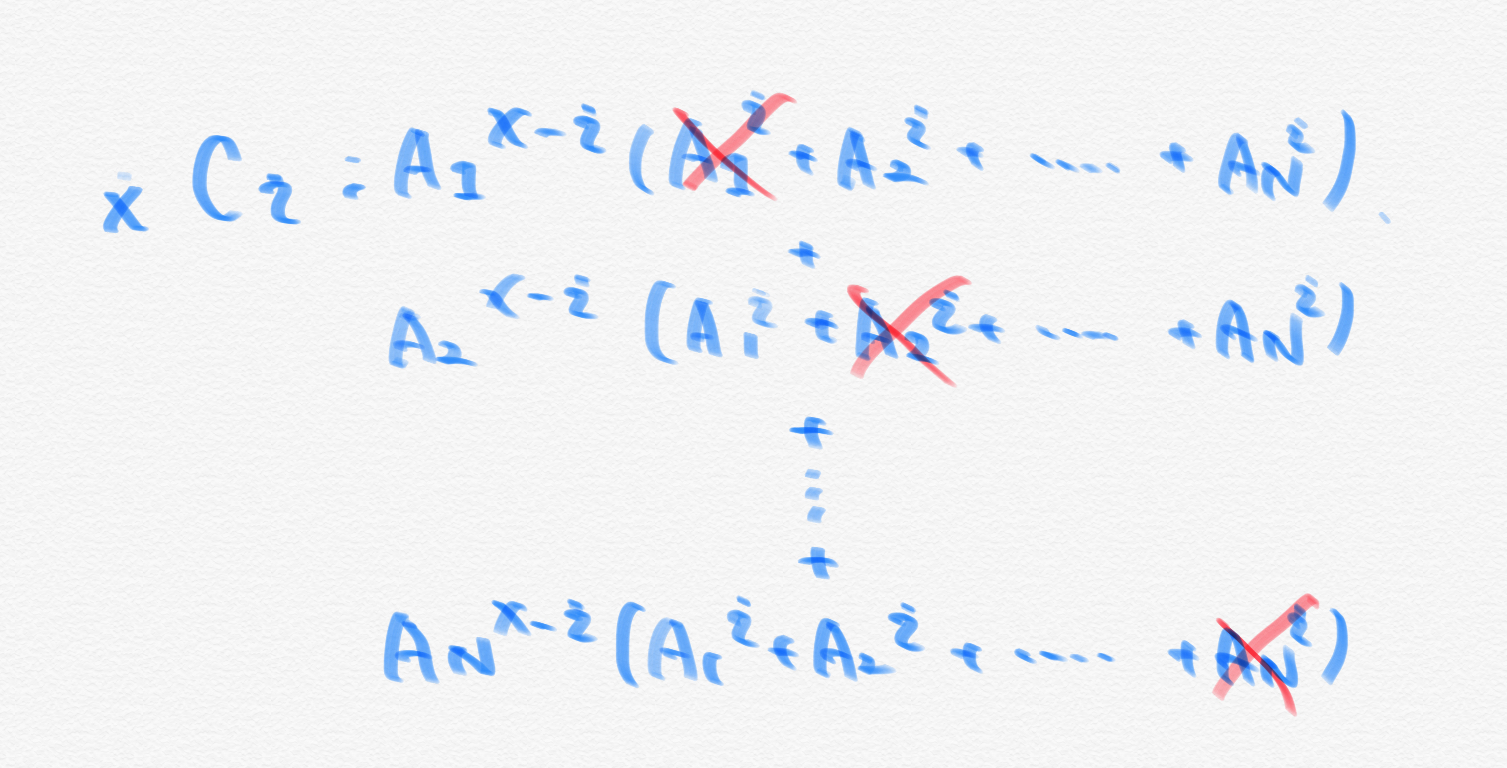 x C i = A1^x-i (A1^i + A2^i + ..... + AN^i)
+
A2^x-i (A1^i + A2^i + ..... + AN^i)
+
⋮
+
AN^x-i (A1^i + A2^i + ..... + AN^i)